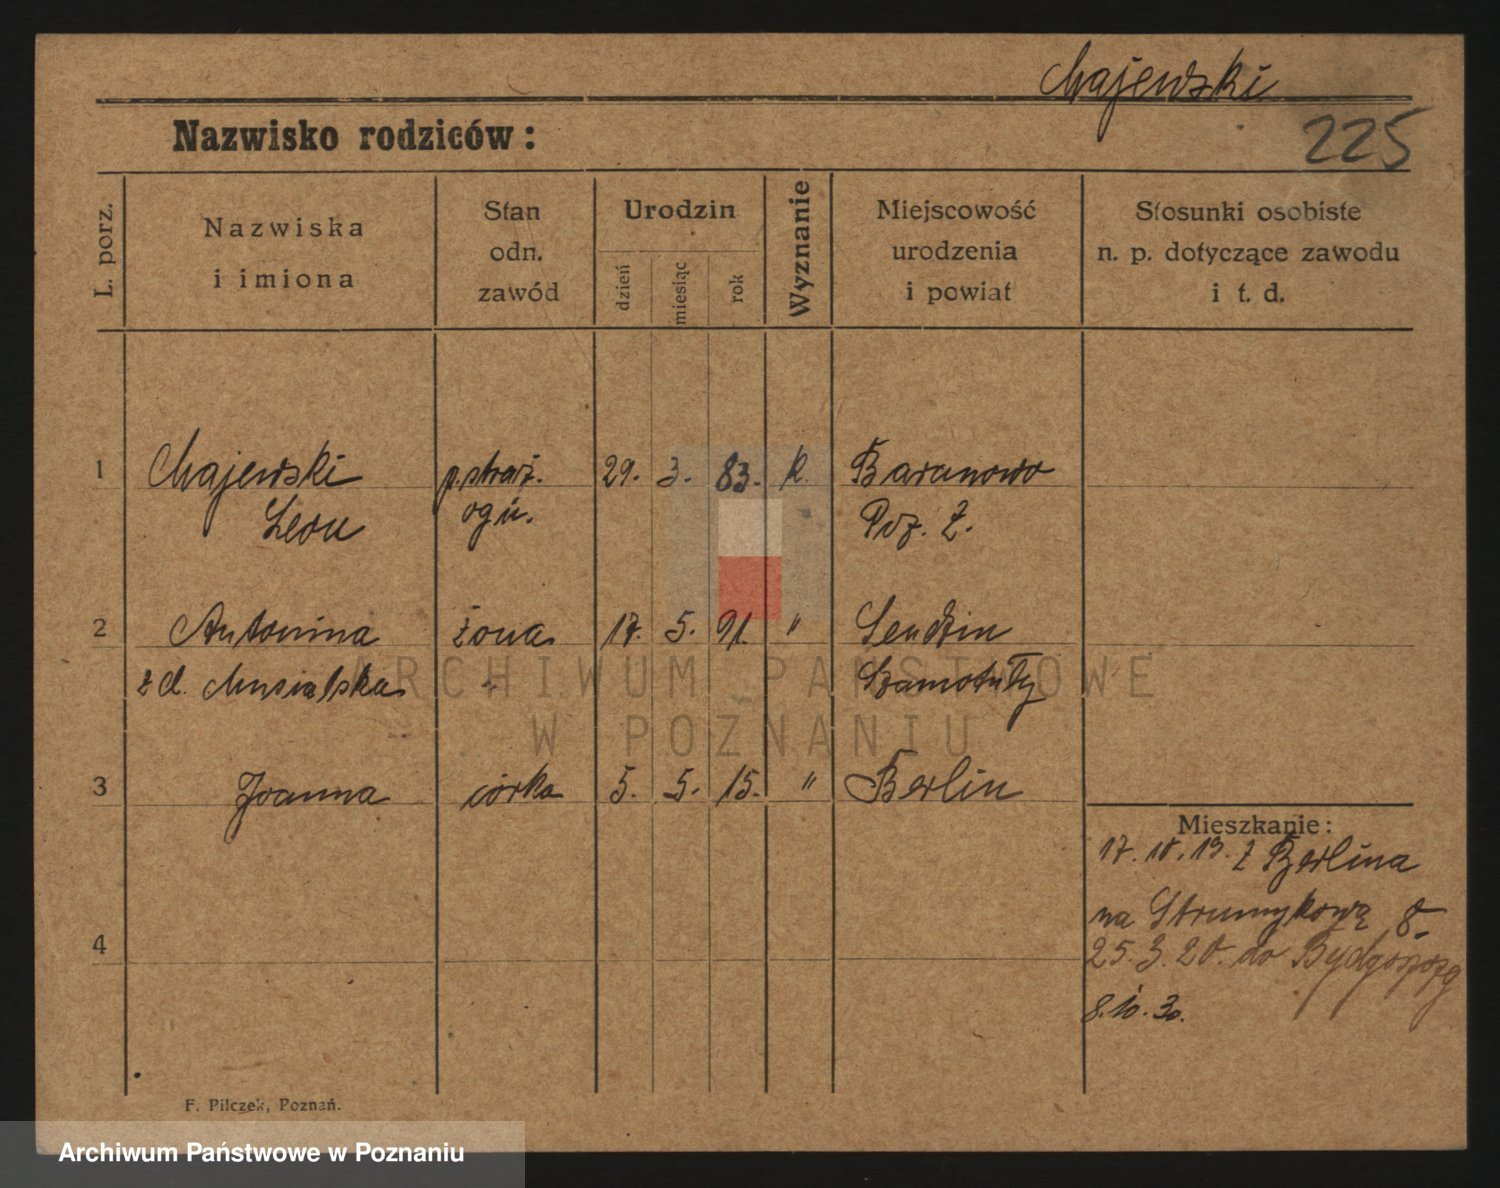 Majewski
Nazwisko rodziców:
225
L. porz.
Nazwiska
i imiona
Stan
odn.
zawód
Urodzin
dzień
miesiąc
rok
Wyznanie
Miejscowość
urodzenia
i powiat
Stosunki osobiste
n. p. dotyczące zawodu
i t. d.
1 Majewski p. straż. 29. 3. 83. k. Baranowo
Leon ogn. Poz. Z.
2 Antonina żona 17. 5. 91. " Sendzin
z d. Musialska " Szamotuły
ARCHIWUM PAŃSTWOWE
W POZNANIU
3 Joanna córka 5. 5. 15. " Berlin
Mieszkanie:
17. 10. 19. z Berlina
na Strumykową 8.
4
25. 3. 20. do Bydgoszczy
8. 10. 30.
F. Pilczek, Poznań.
Archiwum Państwowe w Poznaniu